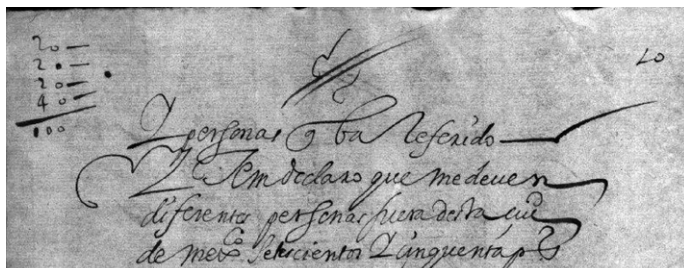 20
2
20
40
100
20
Y personas q ba Referido
Y Ytem declaro que me deuen
diferentes personas fuera desta ciud
de mexco setecientos Y cinquenta ps